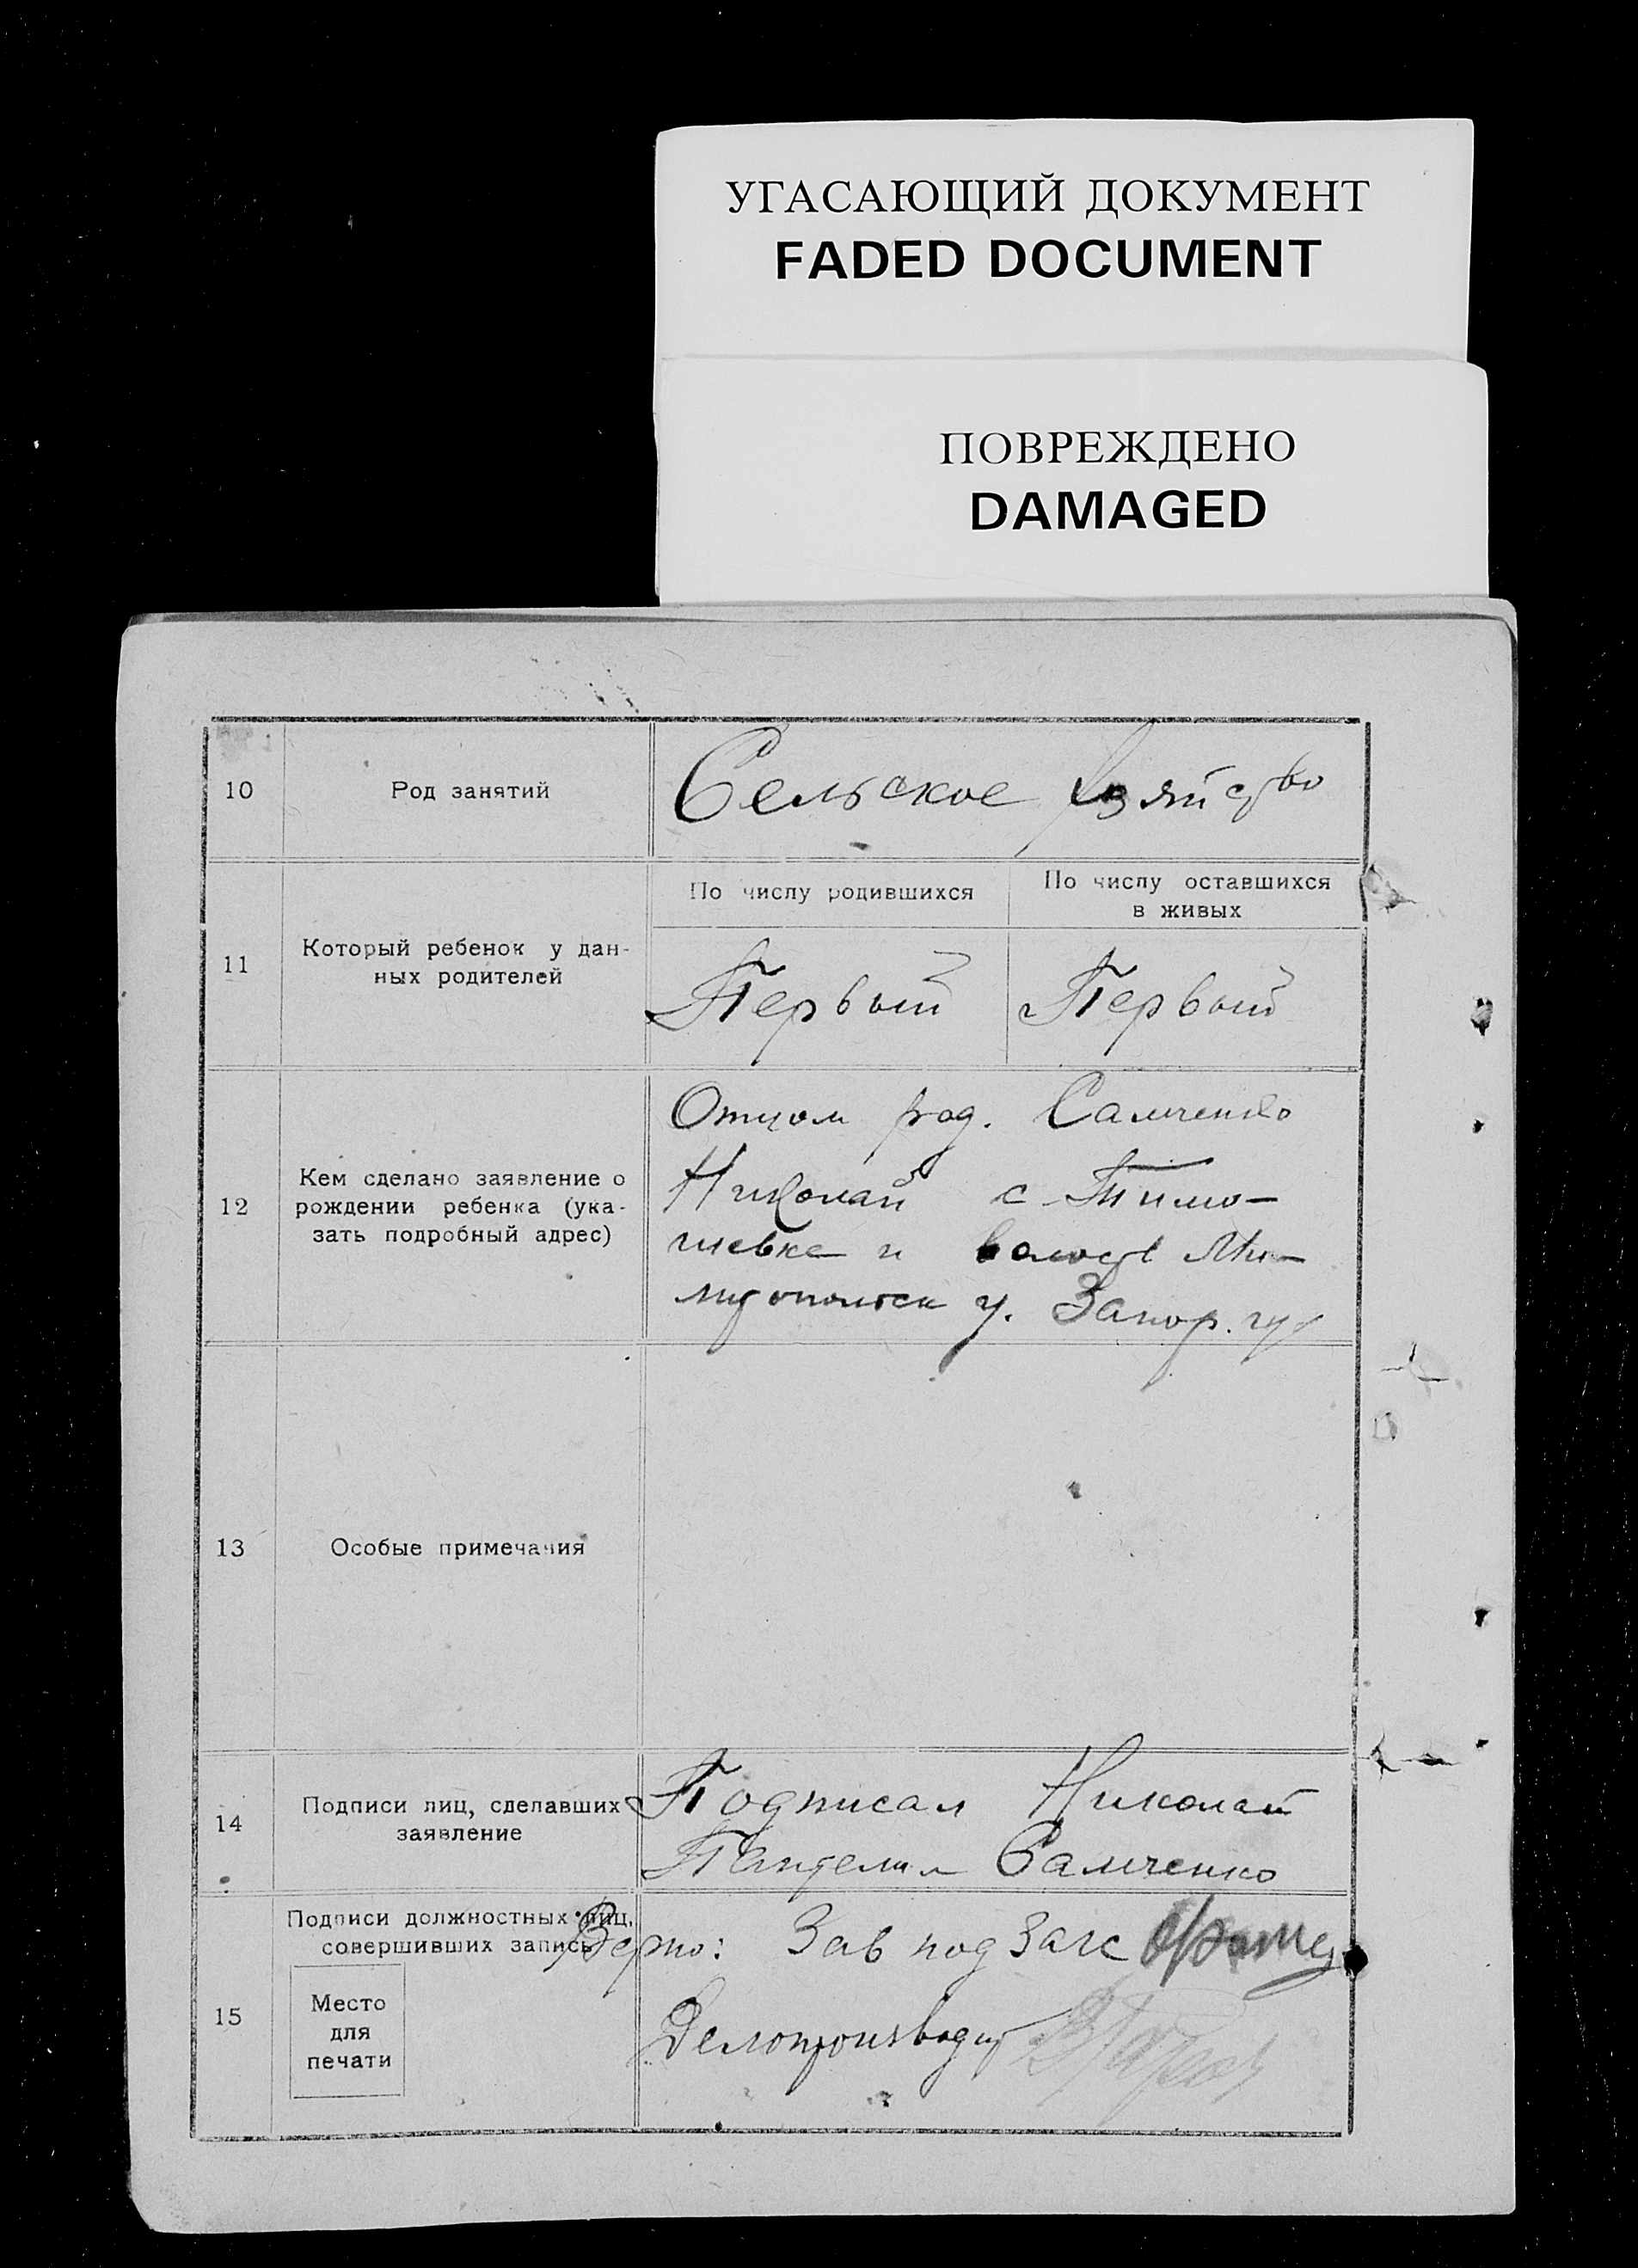 УГАСАЮЩИЙ ДОКУМЕНТ
FADED DOCUMENT
ПОВРЕЖДЕНО
DAMAGED
10
Род занятий
Сельское хозяйство
11
Который ребенок у дан-
ных родителей
По числу родившихся
По числу оставшихся
в живых
Первый
Первый
12
Кем сделано заявление о
рождении ребенка (ука-
зать подробный адрес)
Отцом род. Самченко
Николай с Тимо-
шевке и волост Ми-
литопольск у. Запор. губ
13
Особые примечания
14
Подписи лиц, сделавших
заявление
Подписал Николай
Самченко
15
Подписи должностных лиц,
совершивших запись
Верно: Зав под Загс
Место
для
печати
Делопроизводит